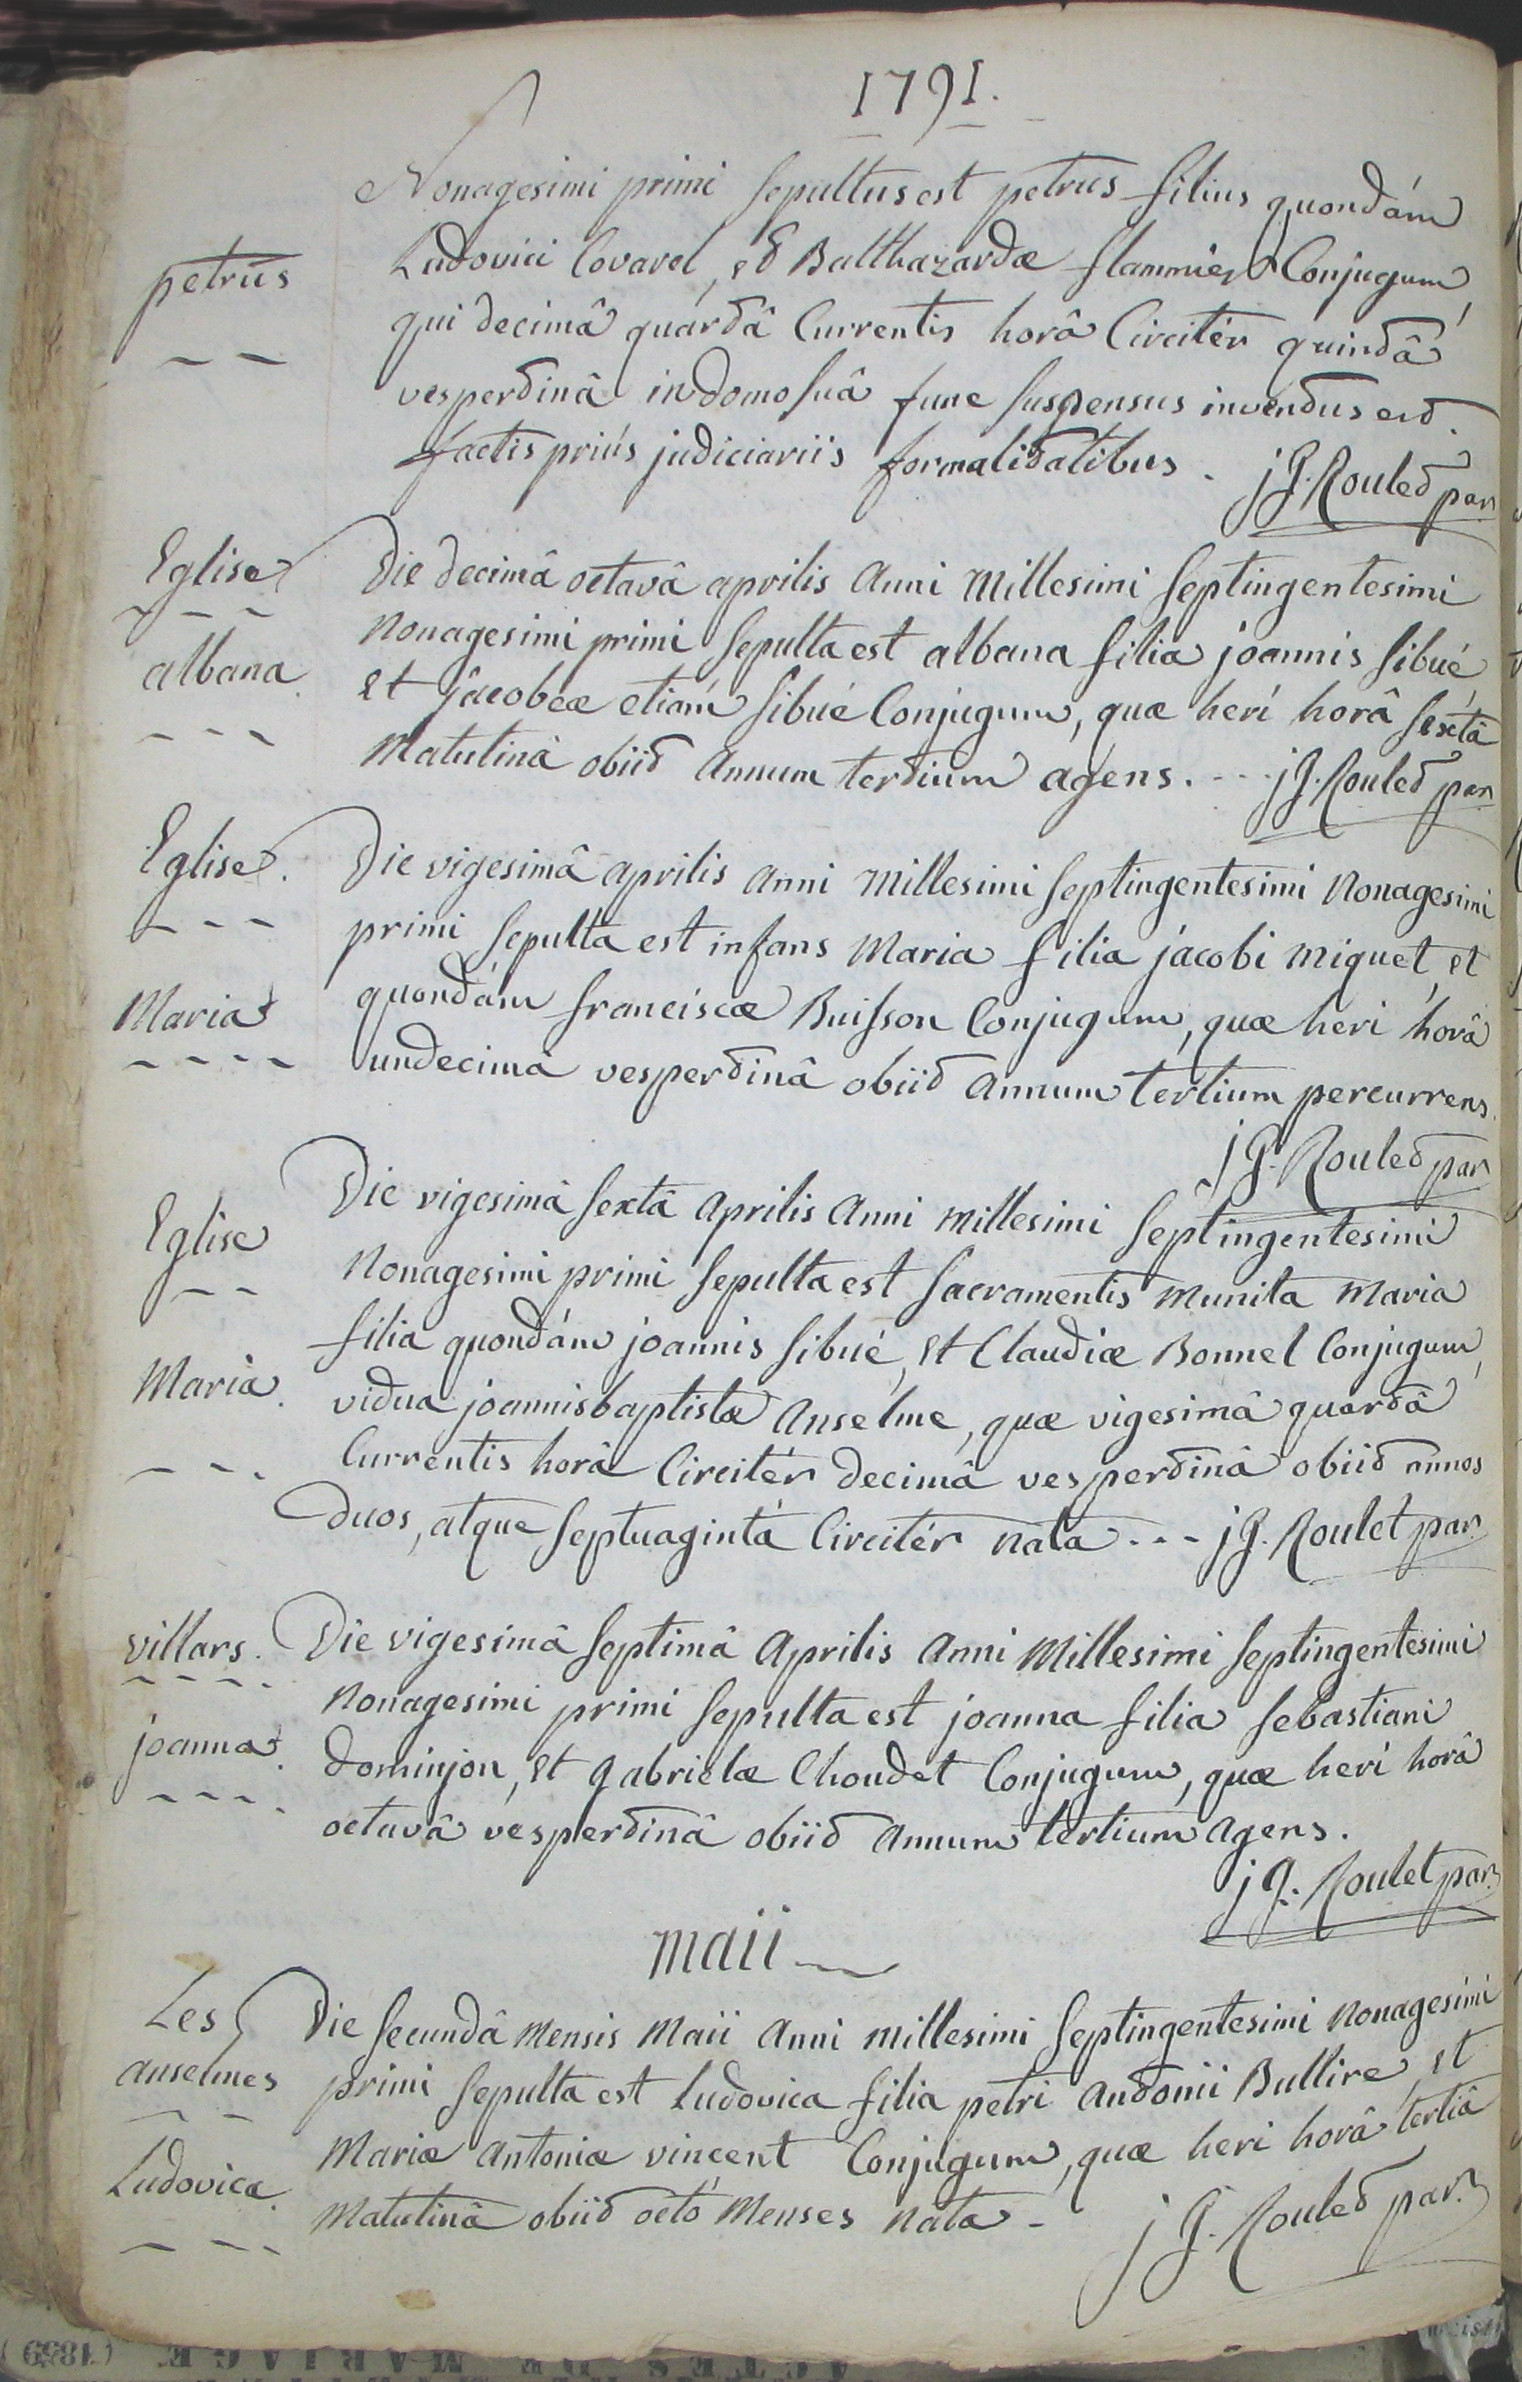 1791.
Nonagesimi primi sepultus est petrus filius quondám
petrus
Ludovici Covarel, et Balthazardæ flammier Conjugum,
qui decimâ quartâ Currentis horâ Circitér quintâ
vespertinâ in domo suâ fune suspensus inventus est.
factis priús judiciariis formalitatibus. j G. Roulet par
Eglise
Die decimâ octavâ aprilis Anni Millesimi septingentesimi
albana
nonagesimi primi sepulta est albana filia joannis sibué
et jacobeæ etiám sibué Conjugum, quæ heri horâ sextâ
Matutinâ obiit Annum tertium agens. - - - j G. Roulet par
Eglise.
Die vigesimâ aprilis anni Millesimi septingentesimi Nonagesimi
primi sepulta est infans Maria filia jacobi Miquet, et
Maria
quondám franciscæ Buisson Conjugum, quæ heri horâ
undecimâ vespertinâ obiit Annum tertium percurrens.
j G. Roulet par
Eglise
Die vigesimâ sextâ Aprilis Anni Millesimi septingentesimi
Nonagesimi primi sepulta est sacramentis Munita Maria
Maria.
filia quondám joannis sibué, et Claudiæ Bonnel Conjugum,
vidua joannisbaptistæ Anselme, quæ vigesimâ quartâ
Currentis horâ Circitér decimâ vespertinâ obiit annos
duos, atque septuagintá Circitér nata - - - j G. Roulet par
villars.
Die vigesimâ septimâ Aprilis Anni Millesimi septingentesimi
joanna.
Nonagesimi primi sepulta est joanna filia sebastiani
dominjon, et gabrielæ Choudet Conjugum, quæ heri horâ
octavâ vespertinâ obiit Annum tertium Agens.
j G. Roulet par
Maii
Les
Die secundâ Mensis Maii Anni Millesimi septingentesimi Nonagesimi
Anselmes
primi sepulta est Ludovica filia petri Antonii Bullire, et
Ludovica.
Mariæ Antoniæ vincent Conjugum, quæ heri horâ tertiâ
Matutinâ obiit octó Menses Nata - j G. Roulet par
ACTES DE MARIAGE (1859)